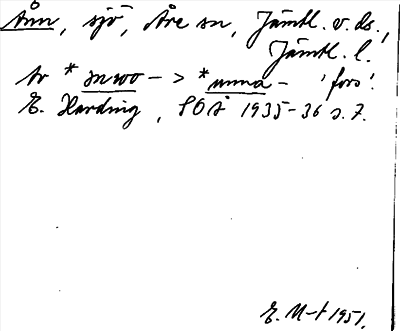 Ånn, sjö, Åre sn, Jämtl. v. ds.,
Jämtl. l.
Av * snwo- > * unna- 'fors'.
E. Harding, SOÅ 1935-36 s. 7.
E. M-t 1951.